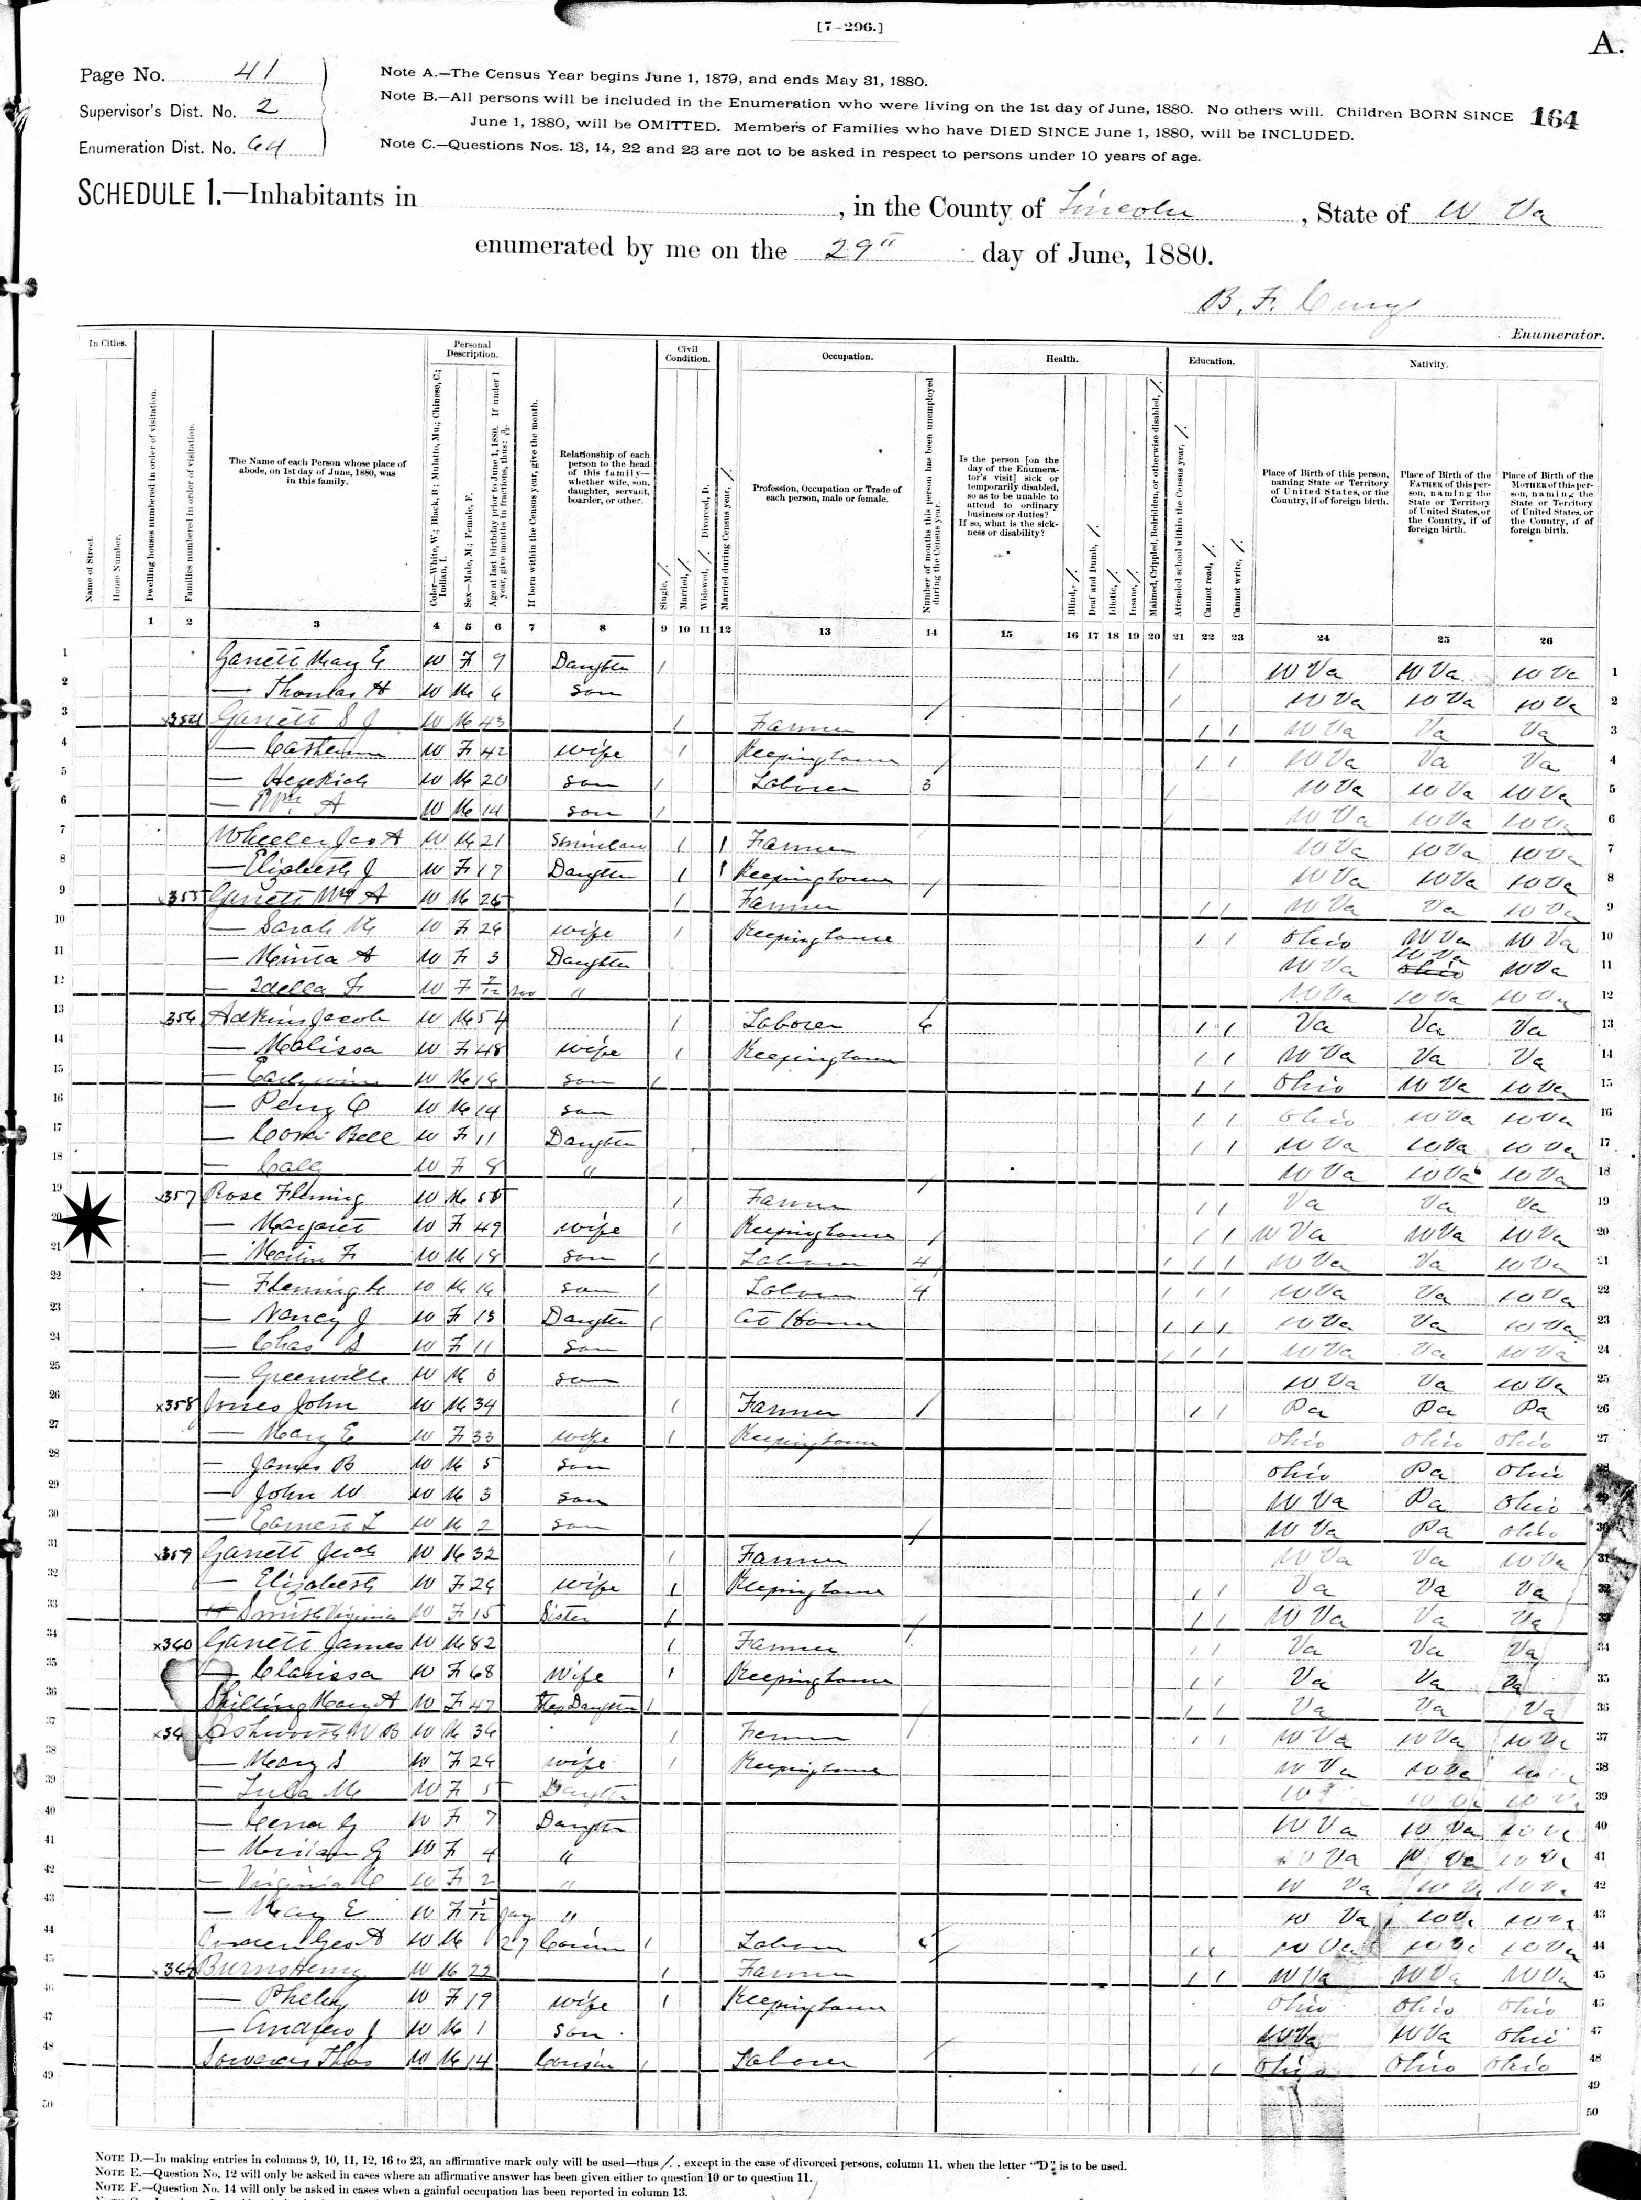 [7-296.]
A.
Page No. 41
Supervisor's Dist. No. 2
Enumeration Dist. No. 64
Note A.—The Census Year begins June 1, 1879, and ends May 31, 1880.
Note B.—All persons will be included in the Enumeration who were living on the 1st day of June, 1880. No others will. Children BORN SINCE
June 1, 1880, will be OMITTED. Members of Families who have DIED SINCE June 1, 1880, will be INCLUDED.
Note C.—Questions Nos. 13, 14, 22 and 23 are not to be asked in respect to persons under 10 years of age.
164
SCHEDULE 1.—Inhabitants in , in the County of Lincoln, State of W Va
enumerated by me on the 29" day of June, 1880.
B. F. Curry
Enumerator.
In Cities. Personal Description. Civil Condition. Occupation. Health. Education. Nativity.
Name of Street.
House Number.
Dwelling houses numbered in order of visitation.
Families numbered in order of visitation.
The Name of each Person whose place of abode, on 1st day of June, 1880, was in this family.
Color—White, W.; Black, B.; Mulatto, Mu.; Chinese, C.; Indian, I.
Sex—Male, M.; Female, F.
Age at last birthday prior to June 1, 1880. If under 1 year, give months in fractions, thus: 3/12.
If born within the Census year, give the month.
Relationship of each person to the head of this family—whether wife, son, daughter, servant, boarder, or other.
Single, /.
Married, /.
Widowed, /. Divorced, D.
Married during Census year, /.
Profession, Occupation or Trade of each person, male or female.
Number of months this person has been unemployed during the Census year.
Is the person [on the day of the Enumerator's visit] sick or temporarily disabled, so as to be unable to attend to ordinary business or duties? If so, what is the sickness or disability?
Blind, /.
Deaf and Dumb, /.
Idiotic, /.
Insane, /.
Maimed, Crippled, Bedridden, or otherwise disabled, /.
Attended school within the Census year, /.
Cannot read, /.
Cannot write, /.
Place of Birth of this person, naming State or Territory of United States, or the Country, if of foreign birth.
Place of Birth of the FATHER of this person, naming the State or Territory of United States, or the Country, if of foreign birth.
Place of Birth of the MOTHER of this person, naming the State or Territory of United States, or the Country, if of foreign birth.
1 2 3 4 5 6 7 8 9 10 11 12 13 14 15 16 17 18 19 20 21 22 23 24 25 26
1 Garrett Mary E W F 9 Daughter / / W Va W Va W Va 1
2 — Thomas H W M 6 son / W Va W Va W Va 2
3 354 Garrett S J W M 43 / Farmer / / W Va Va Va 3
4 — W F 42 wife / Keeping house / / W Va Va Va 4
5 — Hezekiah W M 20 son / Laborer 3 / W Va W Va W Va 5
6 — Wm A W M 14 son / W Va W Va W Va 6
7 Wheeler Jas A W M 21 Soninlaw / / Farmer W Va W Va W Va 7
8 — Elizabeth J W F 17 Daughter / / Keeping house W Va W Va W Va 8
9 355 Garrett Wm A W M 26 / Farmer / / W Va Va W Va 9
10 — Sarah M W F 26 wife / Keeping house / / Ohio W Va W Va 10
11 — Minta A W F 3 Daughter W Va W Va W Va 11
12 — Idella F W F 7/12 Nov " W Va W Va W Va 12
13 356 Adkins Jacob W M 54 / Laborer 6 / / Va Va Va 13
14 — Malissa W F 48 wife / Keeping house / / W Va Va Va 14
15 — W M 16 son / / / Ohio W Va W Va 15
16 — Perry C W M 14 son / / Ohio W Va W Va 16
17 — Cora Bell W F 11 Daughter / / W Va W Va W Va 17
18 — W F 8 " W Va W Va W Va 18
19 357 Rose Fleming W M 58 / Farmer / / Va Va Va 19
20 — Margaret W F 49 wife / Keeping house / / W Va W Va W Va 20
21 — Martin F W M 18 son / Laborer 4 / / / W Va Va W Va 21
22 — Fleming W M 16 son / Laborer 4 / / / W Va Va W Va 22
23 — Nancy J W F 13 Daughter / At Home / / / W Va Va W Va 23
24 — Chas S W F 11 son / / / W Va Va W Va 24
25 — Greenville W M 8 son W Va Va W Va 25
26 358 Jones John W M 34 / Farmer / / Pa Pa Pa 26
27 — Mary E W F 33 wife / Keeping house Ohio Ohio Ohio 27
28 — James B W M 5 son Ohio Pa Ohio
29 — John W W M 3 son W Va Pa Ohio
30 — Earnest L W M 2 son W Va Pa Ohio 30
31 359 Garrett W M 32 / Farmer W Va Va W Va 31
32 — Elizabeth W F 26 wife / Keeping house / / Va Va Va 32
33 Smith Virginia W F 15 Sister / / / W Va Va Va 33
34 360 Garrett James W M 82 / Farmer / / Va Va Va 34
35 — Clarissa W F 68 Wife / Keeping house / / Va Va Va 35
36 Mary A W F 47 Step Daughter / / / Va Va Va 36
37 Ashworth W B W M 36 / Farmer / / W Va W Va W Va 37
38 — Mary S W F 26 wife / Keeping house W Va W Va 38
39 — Lula M W F 5 Daughter W Va 39
40 — G W F 7 Daughter W Va W Va 40
41 — G W F 4 " W Va W Va W Va 41
42 — Virginia M W F 2 " W Va W Va W Va 42
43 — Mary E W F 5/12 Jany " W Va W Va W Va 43
44 Geo A W M 27 Cousin / Laborer 6 / / W Va W Va W Va 44
45 362 Burns Henry W M 22 / Farmer / / W Va W Va W Va 45
46 — W F 19 wife / Keeping house Ohio Ohio Ohio 46
47 — Andrew J W M 1 son W Va W Va Ohio 47
48 Thos W M 14 Cousin / Laborer / / Ohio Ohio Ohio 48
49 49
50 50
NOTE D.—In making entries in columns 9, 10, 11, 12, 16 to 23, an affirmative mark only will be used—thus /, except in the case of divorced persons, column 11, when the letter "D" is to be used.
NOTE E.—Question No. 12 will only be asked in cases where an affirmative answer has been given either to question 10 or to question 11.
NOTE F.—Question No. 14 will only be asked in cases when a gainful occupation has been reported in column 13.